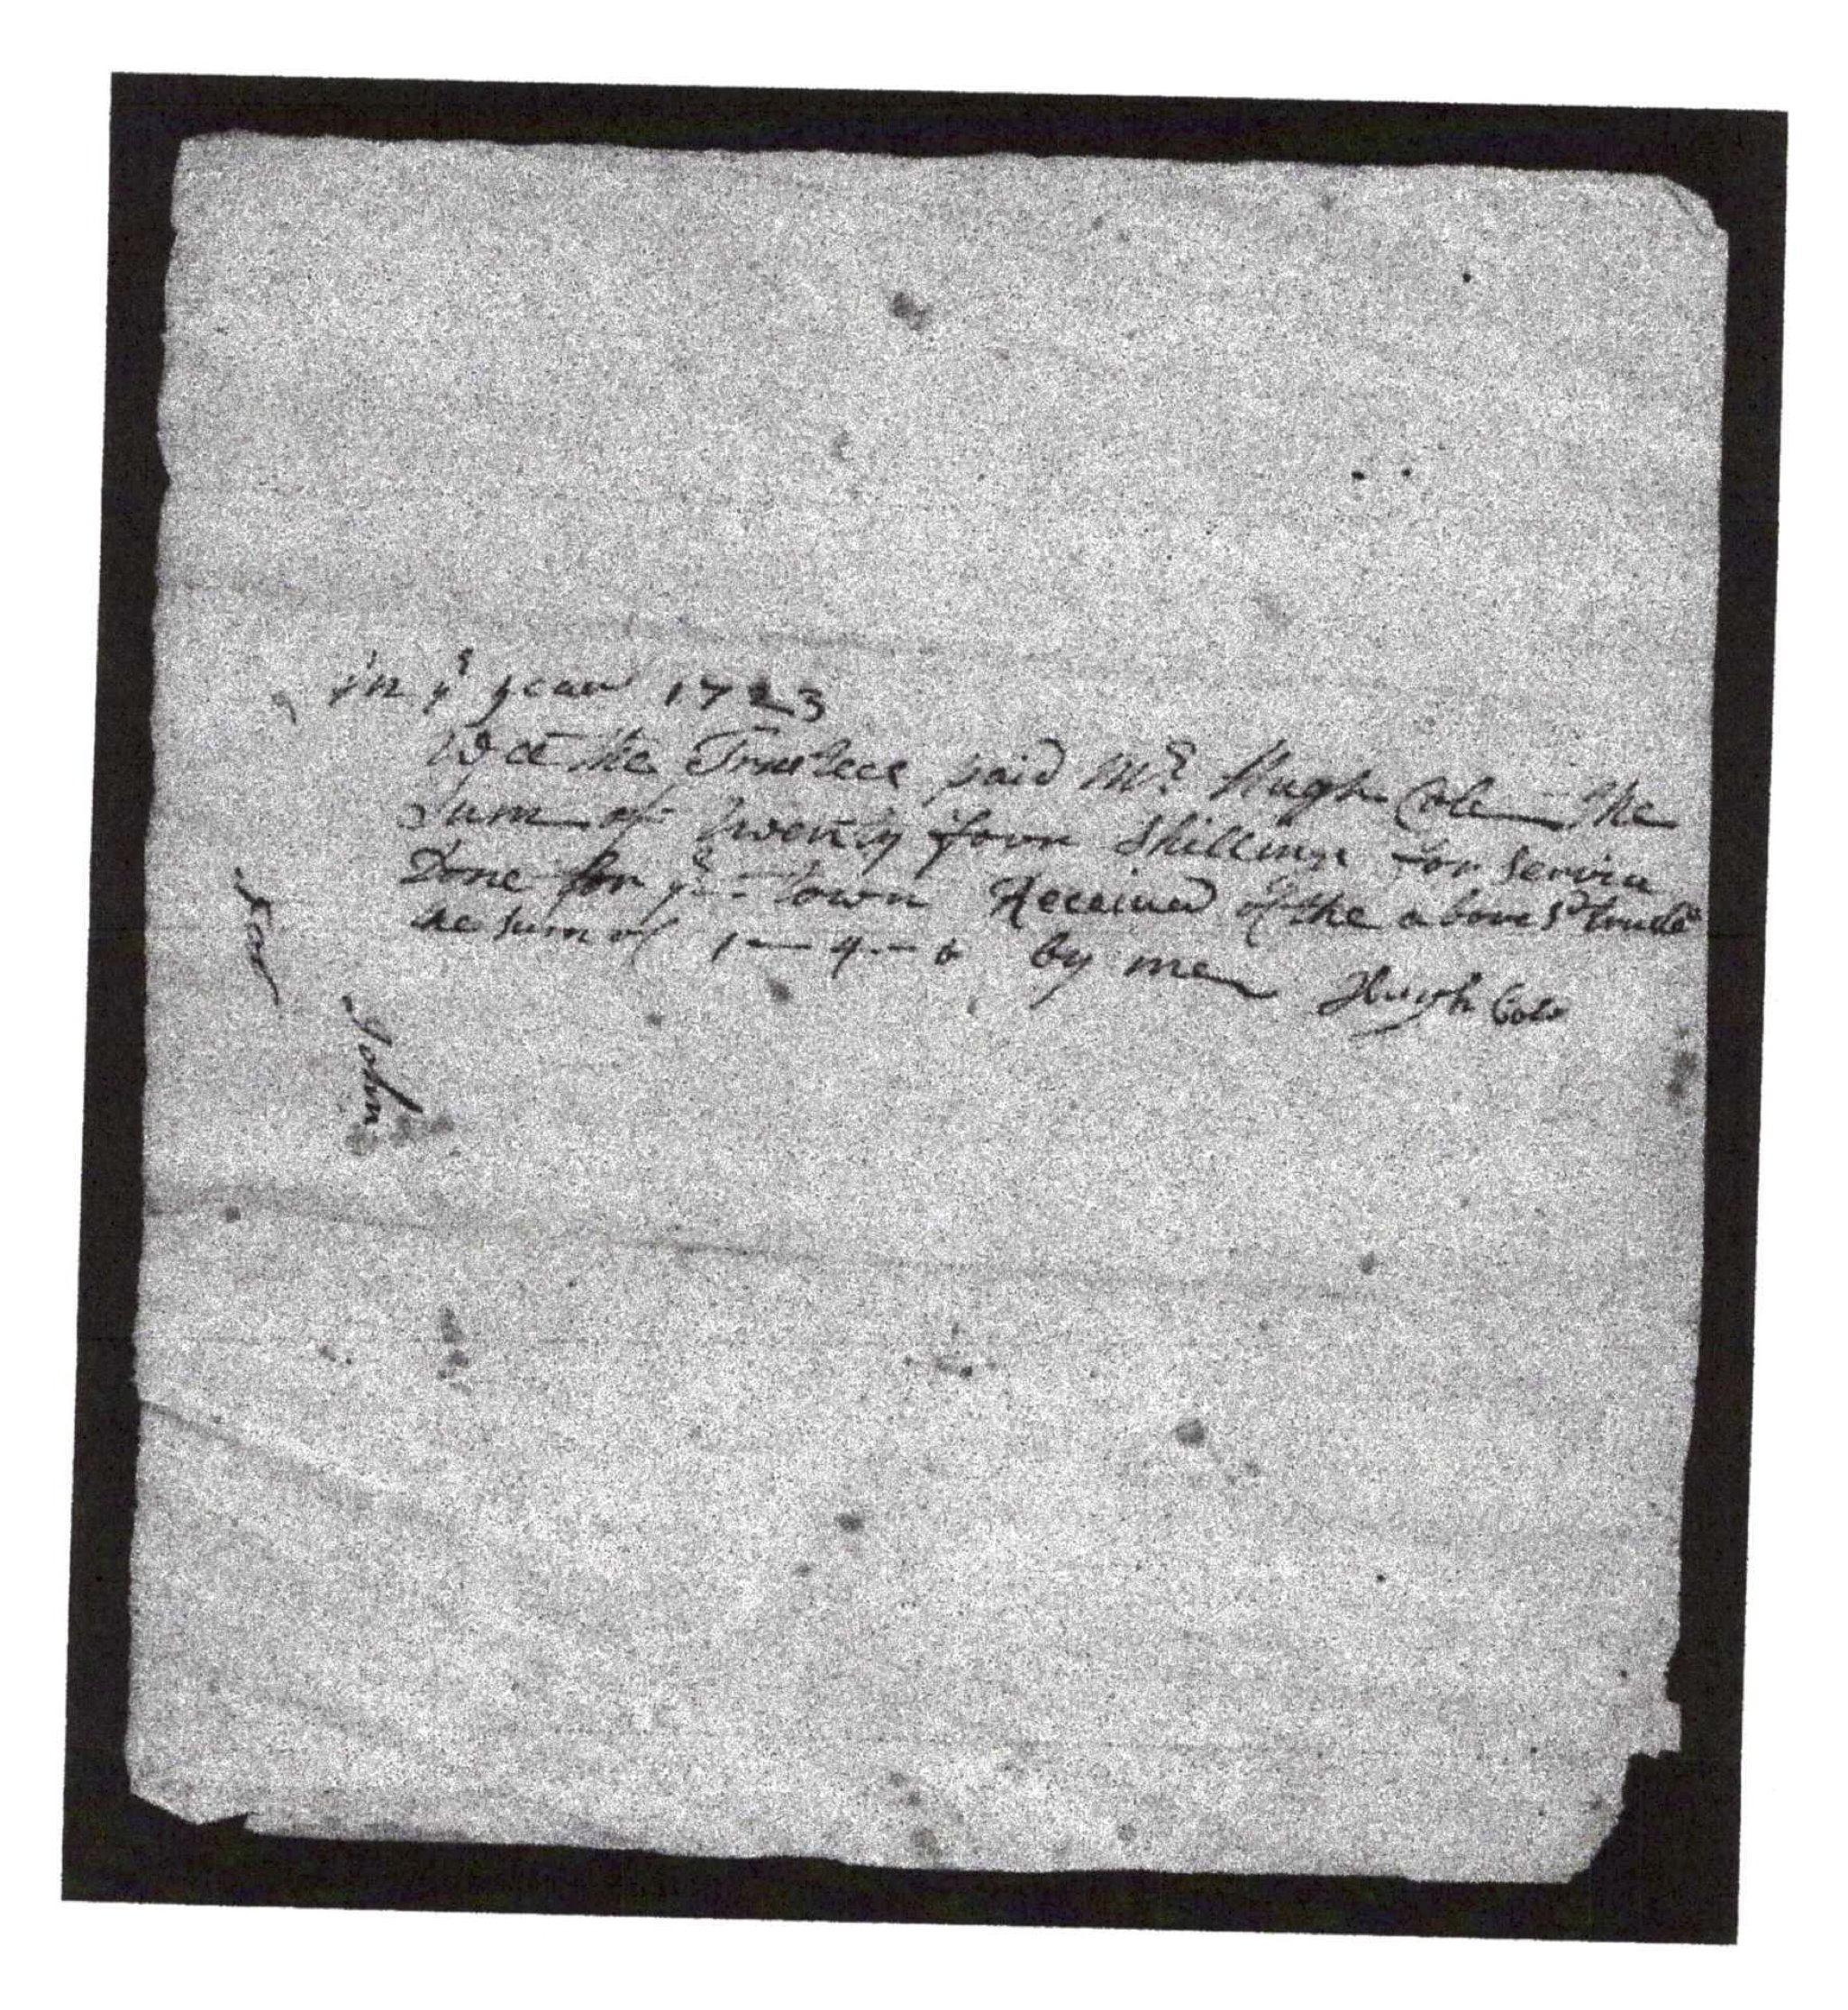 in yͤ year 1723
the Trustees paid Mr Hugh Cole the
Sum of twenty four Shillings for Service
Done for yͤ town Received of the above sd truste
the sum of 1 — 4 — 0 by me Hugh Cole
John